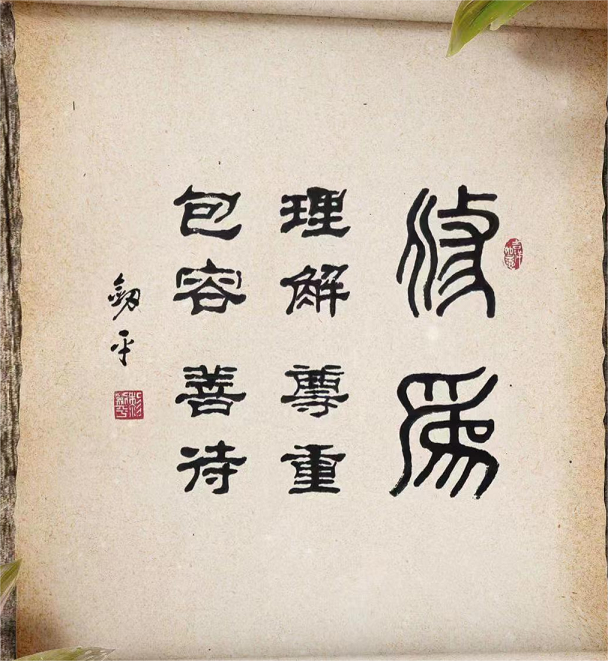 修為
理解尊重
包容善待
劒平